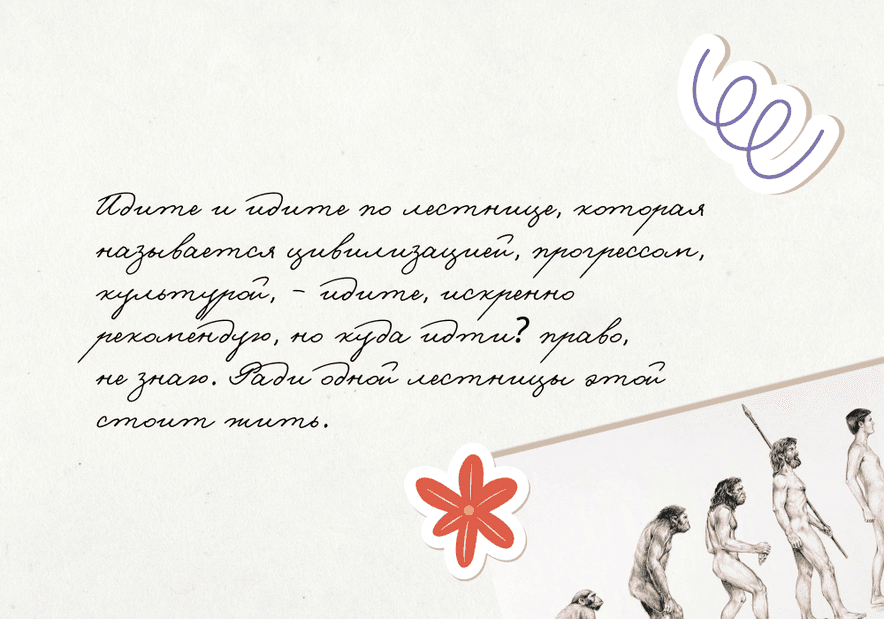 Идите и идите по лестнице, которая
называется цивилизацией, прогрессом,
культурой, – идите, искренно
рекомендую, но куда идти? право,
не знаю. Ради одной лестницы этой
стоит жить.